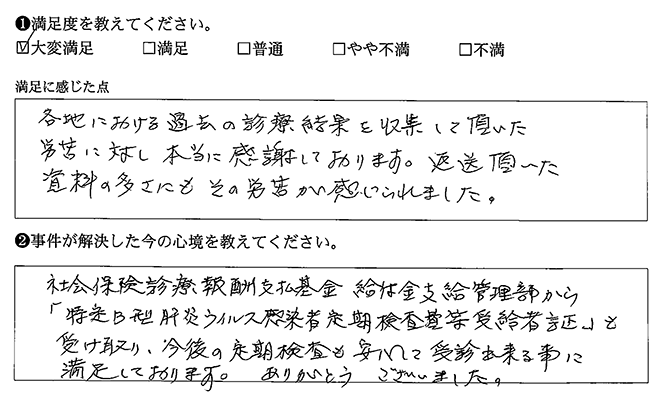 ❶満足度を教えてください。
☑大変満足 □満足 □普通 □やや不満 □不満
満足に感じた点
各地における過去の診療結果を収集して頂いた
労苦に対し本当に感謝しております。返送頂いた
資料の多さにもその労苦が感じられました。
❷事件が解決した今の心境を教えてください。
社会保険診療報酬支払基金 給付金支給管理部から
「特定B型肝炎ウイルス感染者定期検査費等受給者証」も
受け取り、今後の定期検査も安心して受診出来る事に
満足しております。 ありがとう ございました。